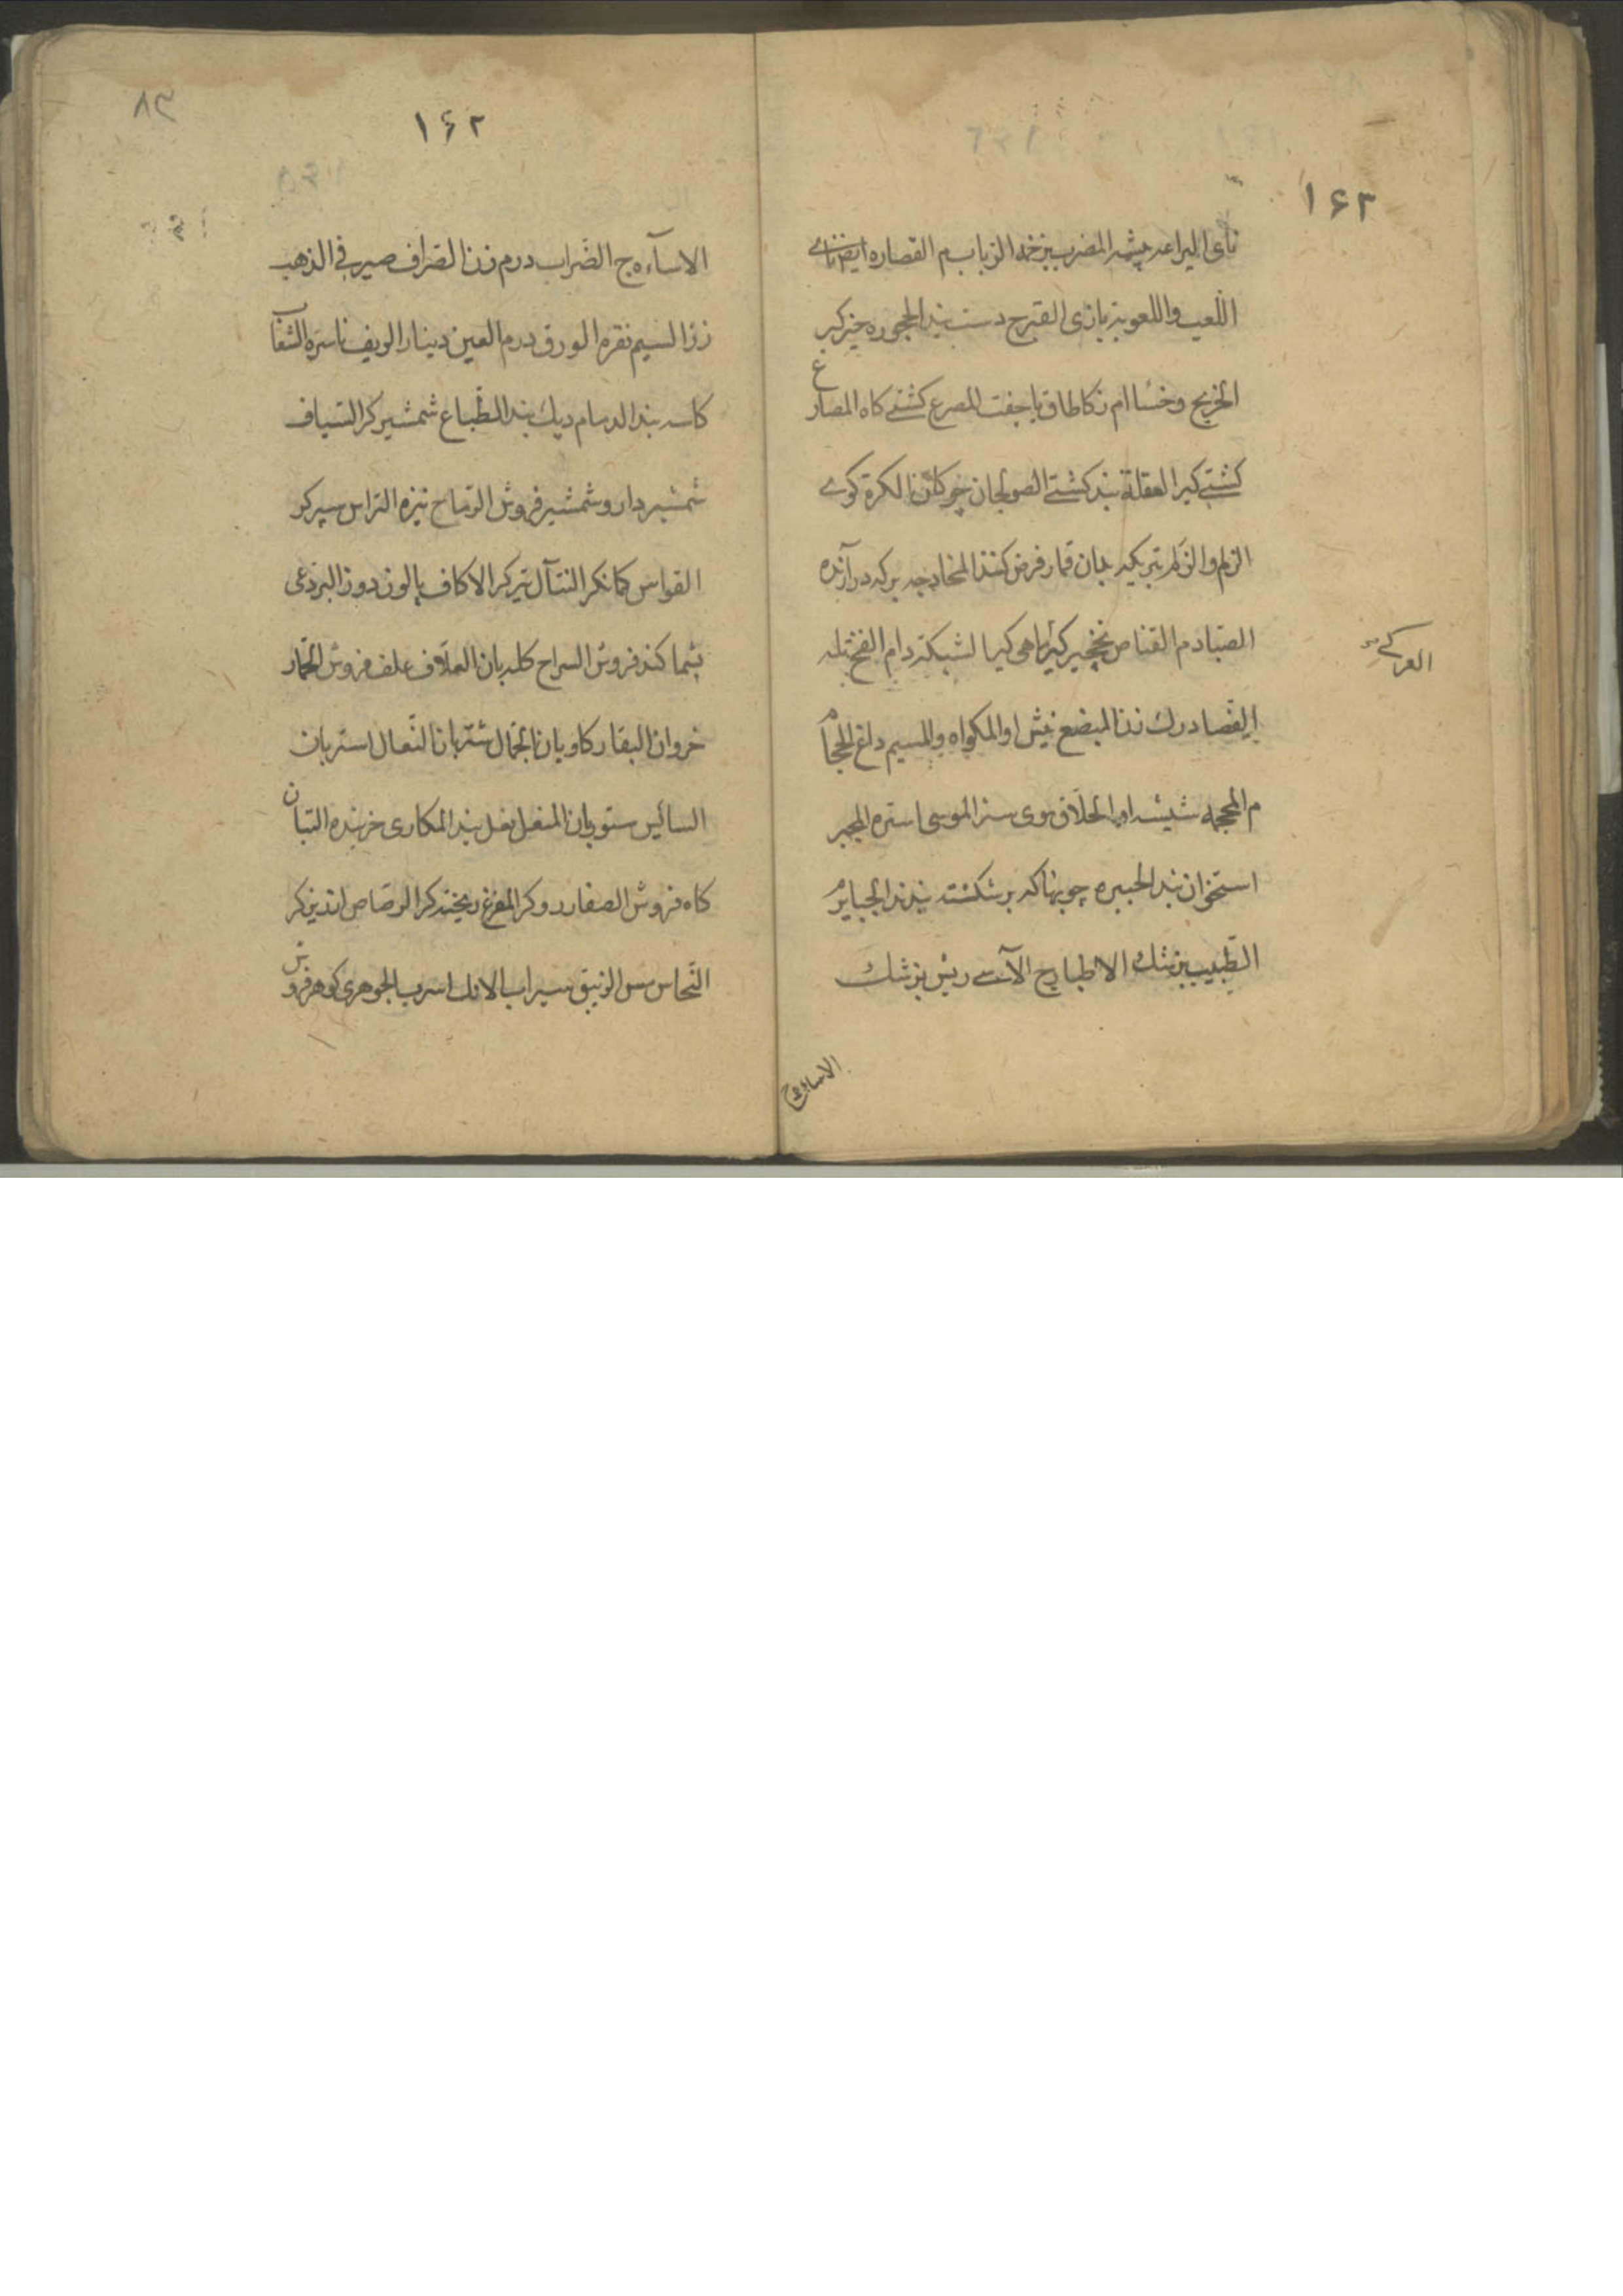 ۱۶۳
نای الیراعه چشمه المضرب زخمه الزباب م القصاره ایضا نای
اللعب واللعوبة بازی الفنزج دست بند الحجوره خیزگیر
الخریج وخسا ام زکا طاق یا جفت المصرع کشتی کاه المصارع
کشتی کیر العقلة بند کشتی الصولجان چوکان الکرة کوی
الزلم والزلم تیر که بدان قمار فرض کنند
الصیاد م القناص نخچیر کیر ماهی کیر الشبکة دام الفخ تله
العرکی
الفصاد رک زن المبضع نیش او المکواه والمیسم داغ الحجام
م المحجمه شیشه او الحلاق موی ستر الموسی استره المجبر
استخوان بند الجبیره چوبها که بر شکسته بندند الجبایر
الطبیب بزشک الاطبا ج الآسی ریش بزشک
الاساة ج
۸۳
۱۶۲
الاسآه ج الضراب درم زن الصراف صیرفی الذهب
زر السیم نقره الورق درم العین دینار الزیف ناسره الشعاب
کاسه بند الرسام دیک بند الطباع شمشیر کر السیاف
شمشیر دار و شمشیر فروش الرماح نیزه التراس سپر کر
القواس کمانکر النبآل تیرکر الاکاف پالون دوز البردعی
بشماکند فروش السراح کله بان العلاف علف فروش الحمار
خروان البقار کاوبان الجمال شتربان البغال استربان
السائس ستوربان المنعل نعل بند المکاری خربنده التبان
کاه فروش الصفار روکر المفرغ ریخته کر الرصاص ارزیزکر
النحاس مس الزیبق سیماب الانک اسرب الجوهری کوهر فروش